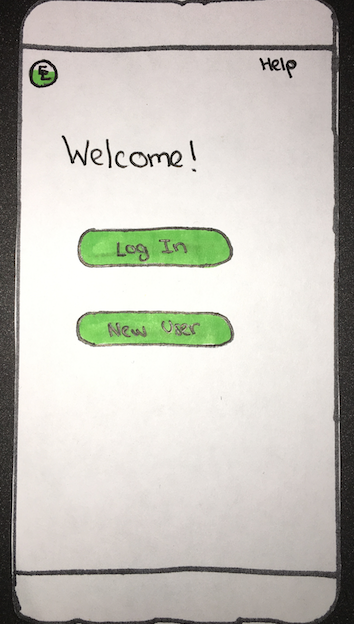 EL Help
Welcome!
Log In
New User